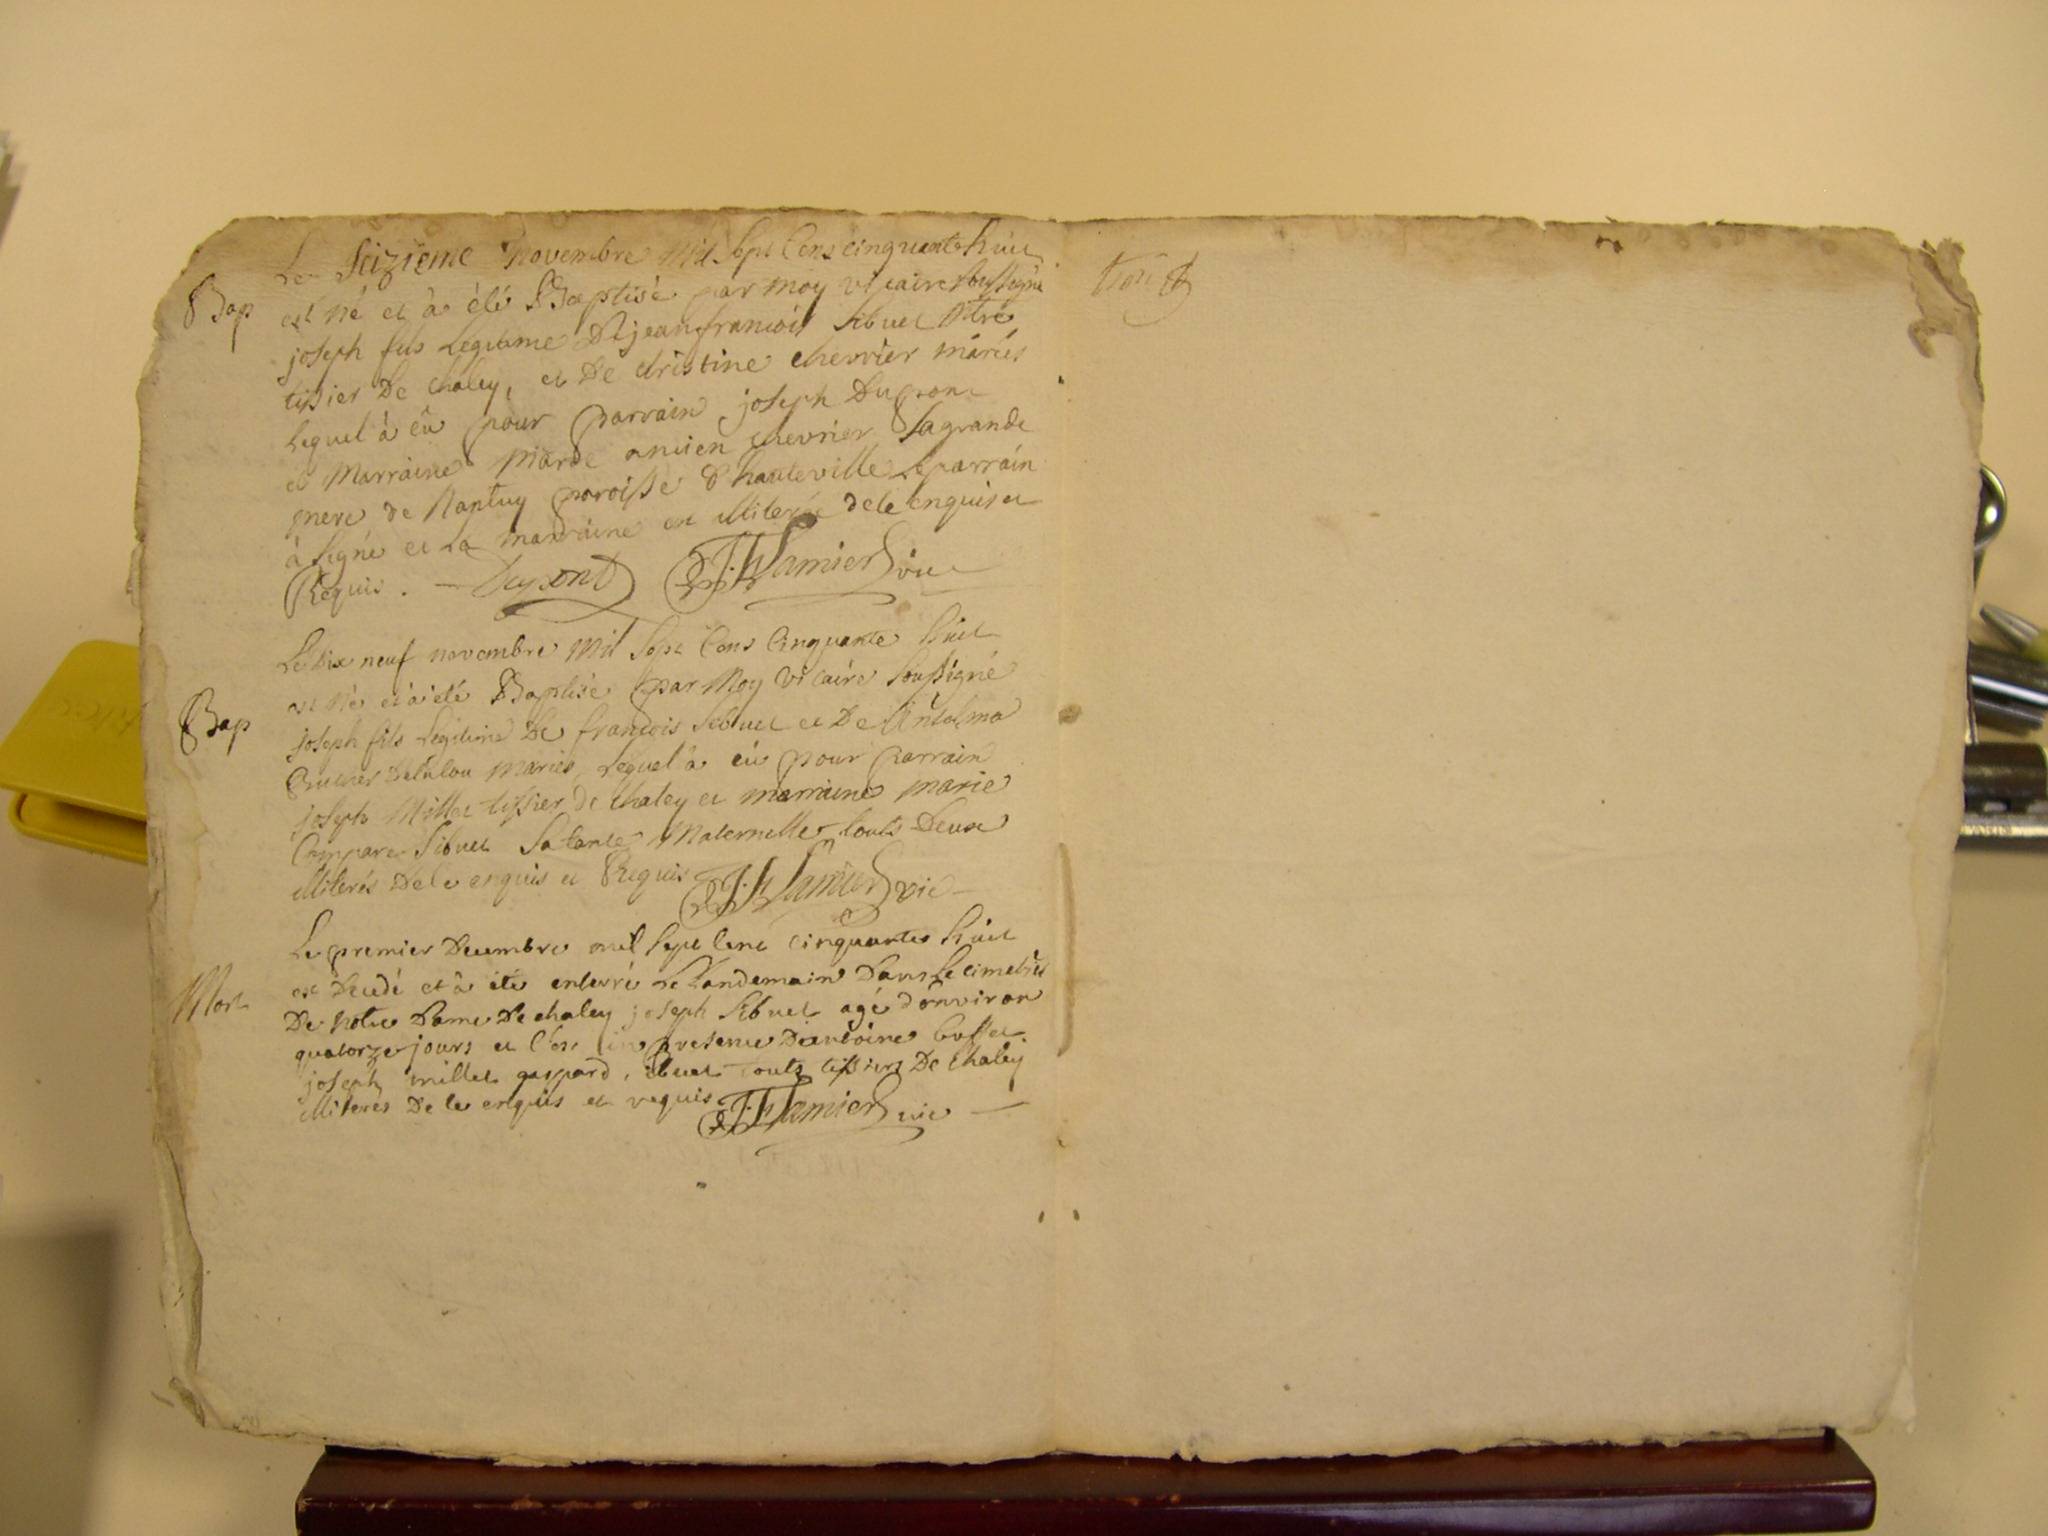 Le Seizieme novembre Mil Sept Cens cinquante huit
Bap
est né et à été Baptisé par moy vicaire soussigné
joseph fils Legitime De jean francois Sibuet Mtre
tissier De chaley, et De christine chevrier mariés
Lequel à êu pour parrain joseph Dupont
et Marraine ancien chevrier Sa grande
mere de paroisse d'hauteville Le parrain
à Signé et La marraine est illiterée de ce enquise et
Requis. Dupont vic
Le dix neuf novembre Mil Sept Cens Cinquante huit
est né et à été Baptisé par Moy vicaire Soussigné
Bap
joseph fils Legitime De françois Sibuet et De Antelma
mariés, Lequel à êu pour parrain
joseph Millet tissier de chaley et marraine marie
Sibuet Sa tante Maternelle touts Deux
illiterés De ce enquis et Requis vic
Le premier Decembre mil Sept Cent cinquante huit
est Decedé et à été enterré Le Landemain Dans Le cimetier
Mort
De Notre Dame De chaley joseph Sibuet agé d'environ
quatorze jours et C'est en presence D'antoine
joseph millet gaspard Sibuet touts tissiers De chaley
illiterés De ce enquis et requis vic